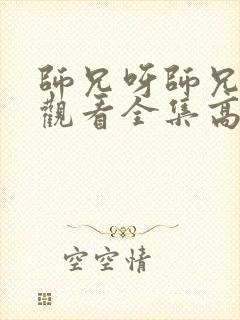 師兄呀師兄
觀看全集高
空空情